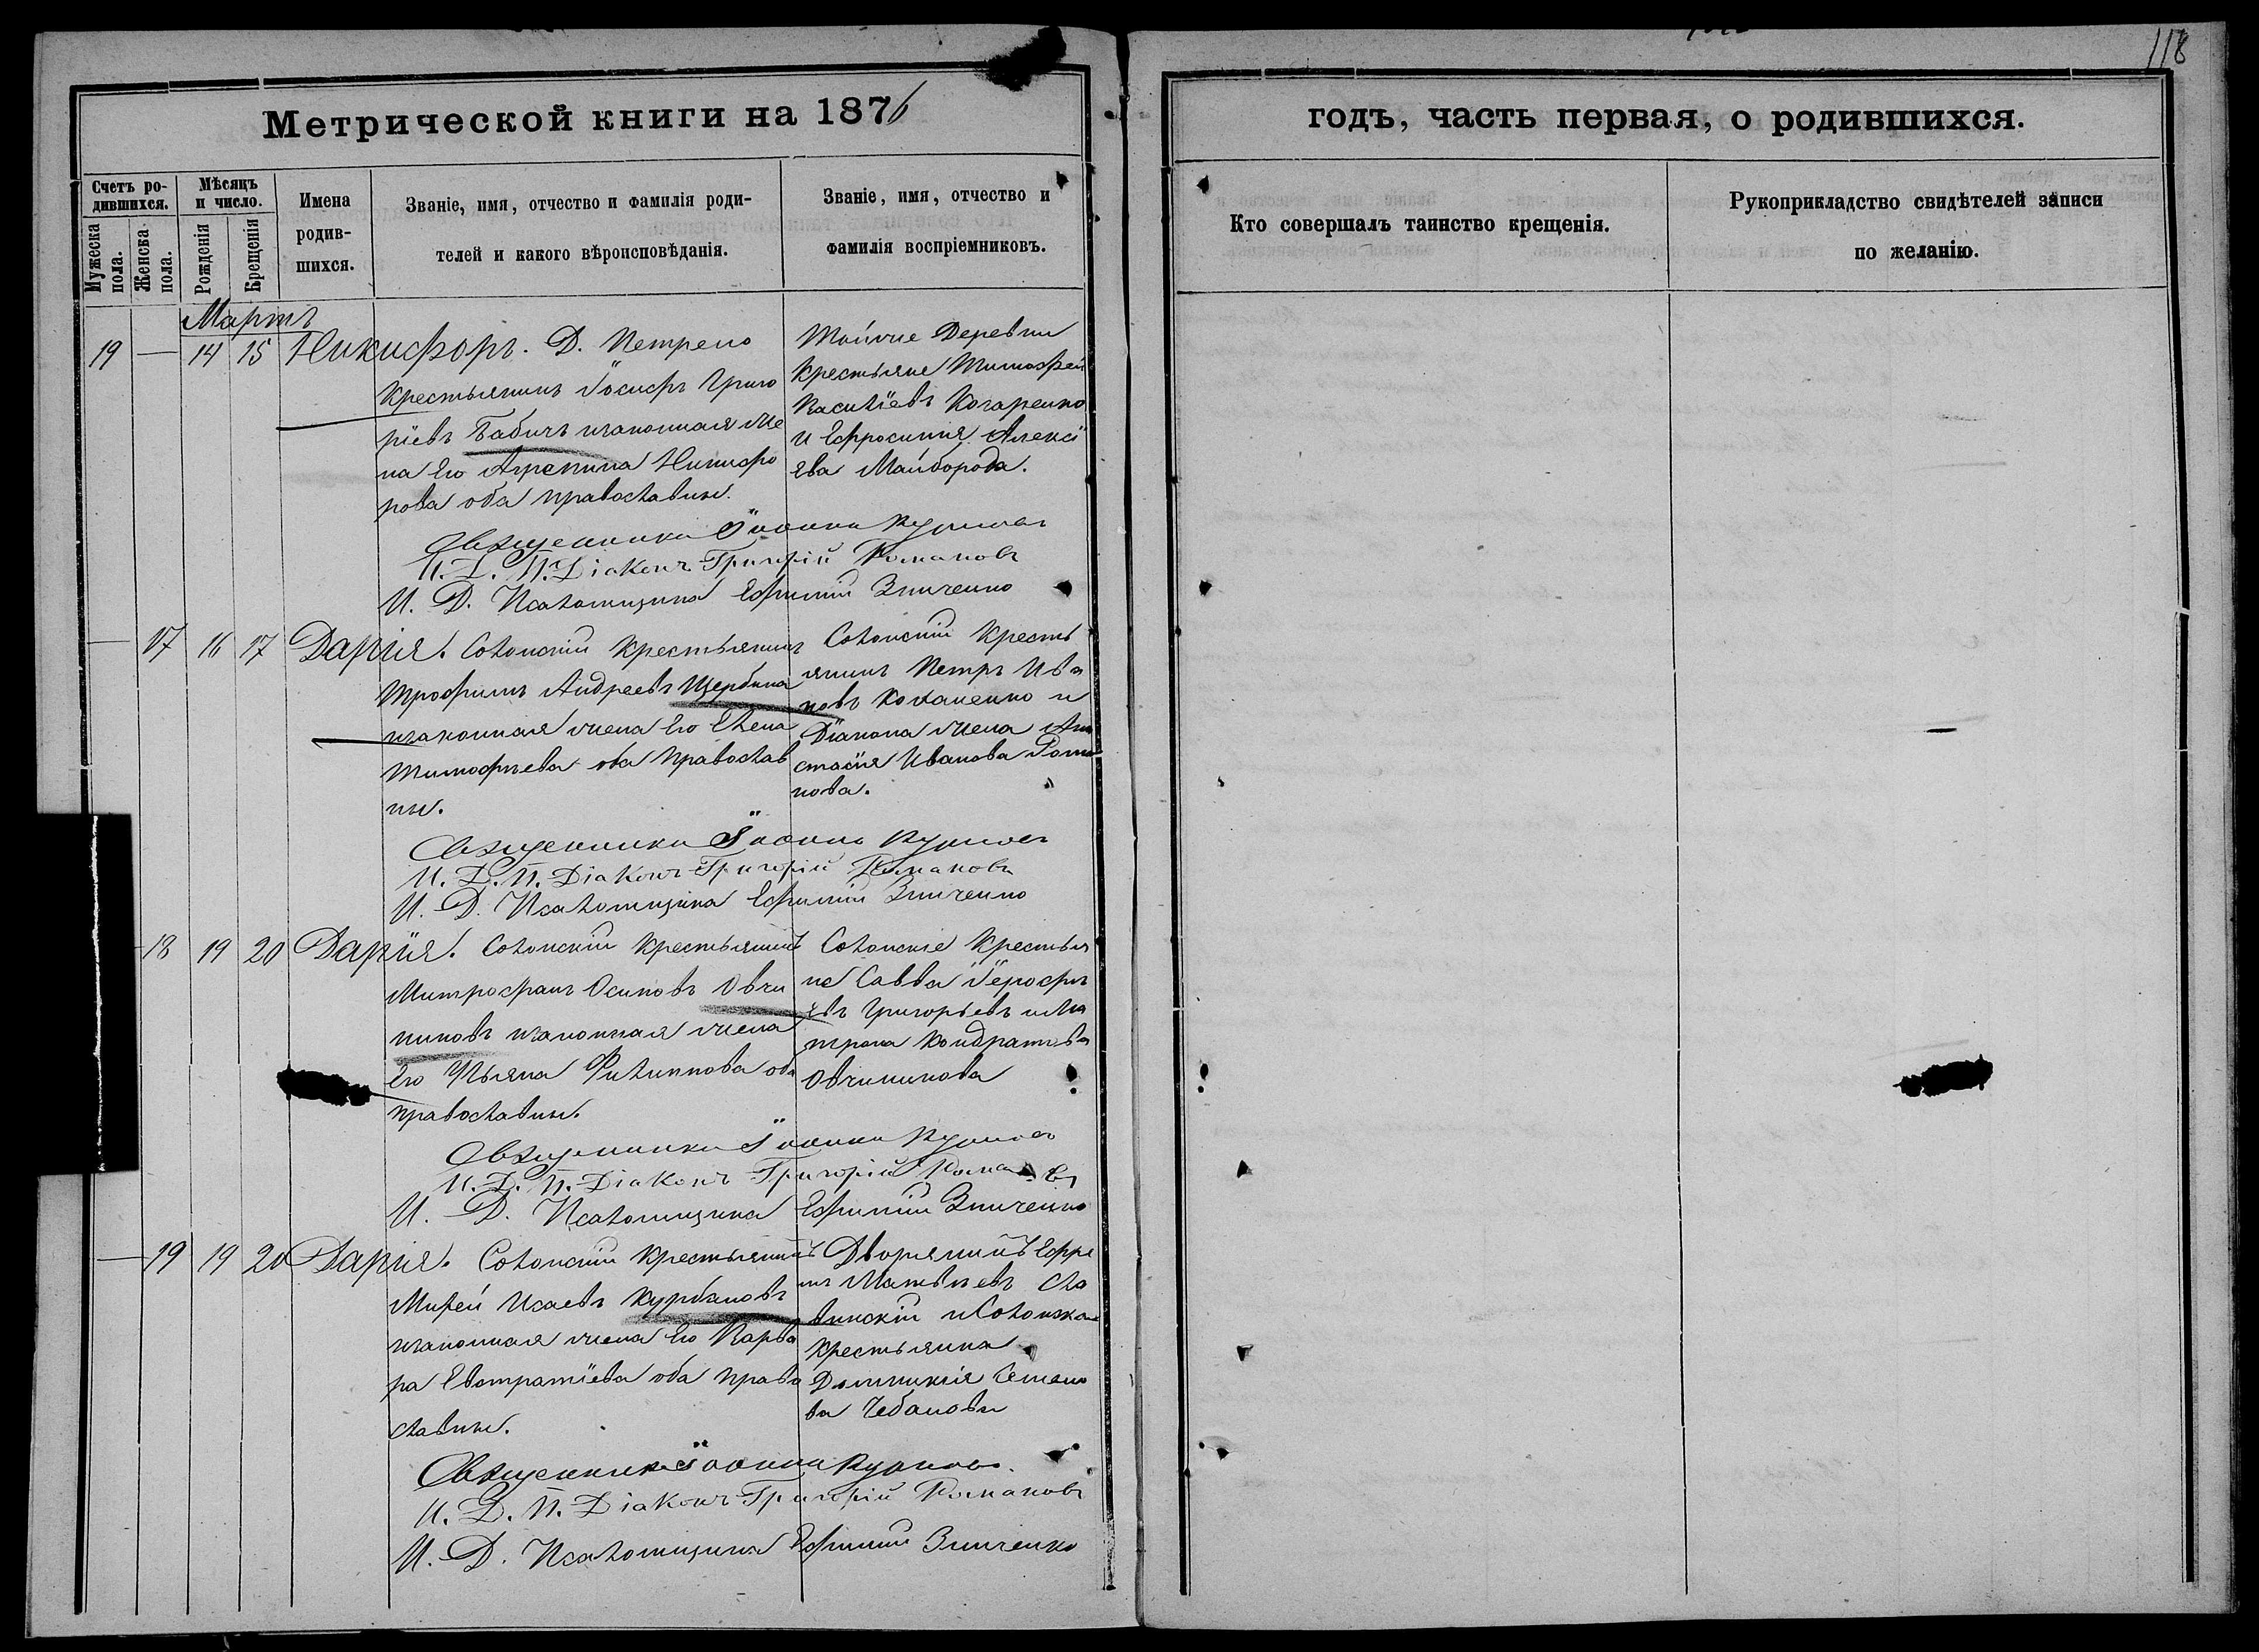 118
Метрической книги на 1876
годъ, часть первая, о родившихся.
Счетъ ро-
дившихся.
Мужеска
пола.
Женска
пола.
Мѣсяцъ
и число.
Рожденія
Крещенія
Имена
родив-
шихся.
Званіе, имя, отчество и фамилія роди-
телей и какого вѣроисповѣданія.
Званіе, имя, отчество и
фамилія воспріемниковъ.
Кто совершалъ таинство крещенія.
Рукоприкладство свидѣтелей записи
по желанію.
Мартъ
19 — 14 15 Никифоръ. Д. Петрено
крестьянинъ Іосифъ Григо
ріевъ Бабичъ изаконная же
на Его Агрепина Никифо
рова оба православны.
Тойже Деревни
крестьяне Тимофей
Василіевъ Кочаренко
и Ефросинія Алексі
ева Майборода.
Священникъ Іоаннъ
И. Д. П. Діаконъ Григорій Романовъ
И. Д. Псаломщика Ефимій Зинченко
— 17 16 17 Дарія. Солонскій крестьянинъ
Трофимъ Андреевъ Щербина
изаконная жена Его Елена
Тимофеева оба православ
ны.
Солонскій кресть
янинъ Петръ Ива
новъ Коханенко и
Діакона жена Ана
стасія Иванова Рома
нова.
Священникъ Іоаннъ
И. Д. П. Діаконъ Григорій Романовъ
И. Д. Псаломщика Ефимій Зинченко
18 19 20 Дарія. Солонскій крестьянинъ
Митрофанъ Осиповъ Овчи
никовъ изаконная жена
Его Ульяна Филиппова оба
православны.
Солонскіе крестья
не Савва Іерофѣ
евъ Григорьевъ и Ма
трона Кондратьева
Овчиникова
Священникъ Іоаннъ
И. Д. П. Діаконъ Григорій Романовъ
И. Д. Псаломщика Ефимій Зинченко
— 19 19 20 Дарія. Солонскій крестьянинъ
Исаевъ Курбановъ
изаконная жена Его Варва
ра Евстратіева оба право
славны.
Дворянинъ Ефре
мъ Матвѣевъ Сла
винскій и Солонская
крестьянка
Домникія Семено
ва Чебанова
Священникъ Іоаннъ
И. Д. П. Діаконъ Григорій Романовъ
И. Д. Псаломщика Ефимій Зинченко